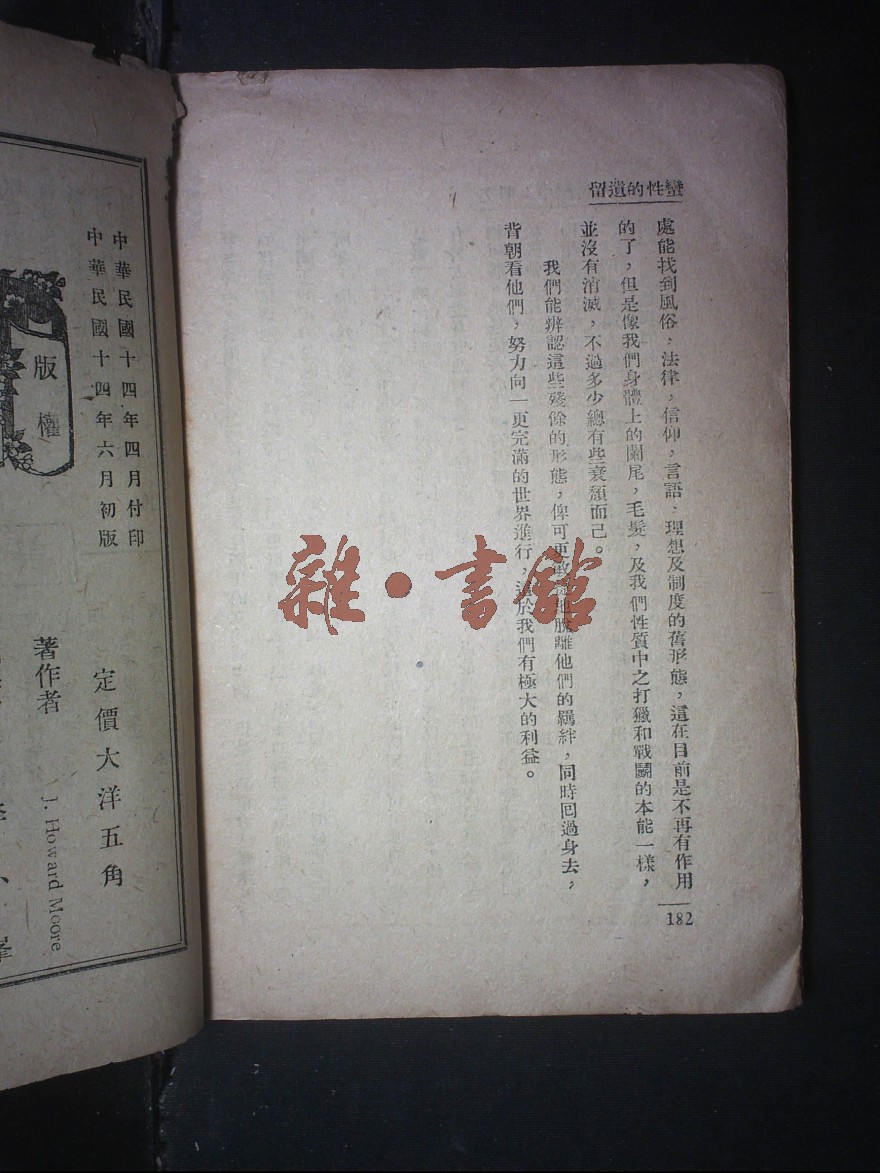 蠻性的遺留
處能找到風俗，法律，信仰，言語，理想及制度的舊形態，這在目前是不再有作用
的了，但是像我們身體上的闌尾，毛髮，及我們性質中之打獵和戰鬭的本能一樣，
並沒有消滅，不過多少總有些衰頹而已。
我們能辨認這些殘餘的形態，俾可更地脫離他們的羈絆，同時回過身去，
背朝着他們，努力向一更完滿的世界進行，這於我們有極大的利益。
182
雜·書館
中華民國十四年四月付印
中華民國十四年六月初版
定價大洋五角
版權
著作者 J. Howard Moore